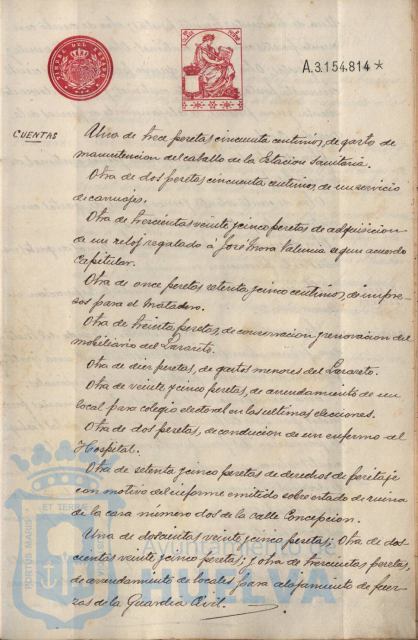 TIMBRE DEL ESTADO
A.3.154.814*
CUENTAS
Una de trece pesetas cincuenta centimos, de gasto de
manutencion del caballo de la Estacion Sanitaria.
Otra de dos pesetas cincuenta centimos, de un servicio
de carruajes.
Otra de trescientas veinte y cinco pesetas de adquisicion
de un reloj regalado á José Mora Valencia segun acuerdo
Capitular.
Otra de once pesetas setenta y cinco centimos, de impre-
sos para el Matadero.
Otra de treinta pesetas, de conservacion y renovacion del
mobiliario del Lazareto.
Otra de diez pesetas, de gastos menores del Lazareto.
Otra de veinte y cinco pesetas, de arrendamiento de un
local para colegio electoral en las ultimas elecciones.
Otra de dos pesetas, de conducion de un enfermo al
Hospital.
Otra de setenta y cinco pesetas de derechos de peritaje
con motivo del informe emitido sobre estado de ruina
de la casa número dos de la calle Concepcion.
Una de doscientas veinte y cinco pesetas; Otra de dos-
cientas veinte y cinco pesetas; y otra de trescientas pesetas,
de arrendamiento de locales para alojamiento de fuer-
zas de la Guardia Civil.
PORTUS MARIS ET TERRAE
Ayuntamiento de
HUELVA